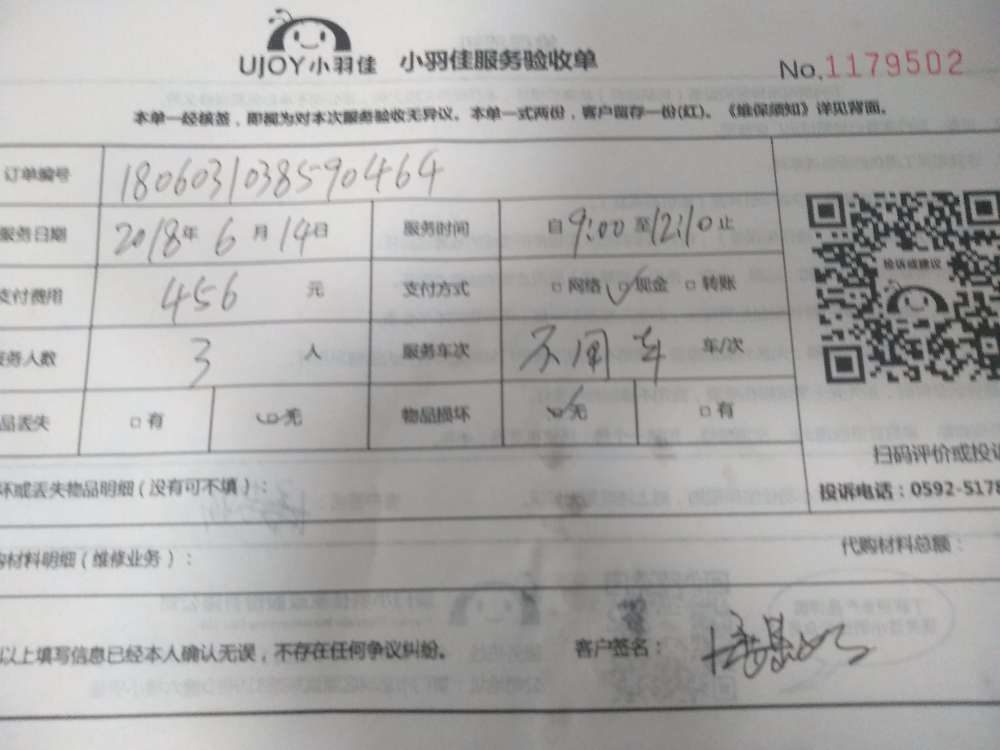 UJOY小羽佳 小羽佳服务验收单 No.1179502
本单一经核签，即视为对本次服务验收无异议。本单一式两份，客户留存一份(红)。《维保须知》详见背面。
订单编号 1806031038590464
服务日期 2018年6月14日 服务时间 自9:00至12:10止
支付费用 456 元 支付方式 □网络 □现金 □转账
务人数 3 人 服务车次 不用车 车/次
品丢失 □有 □无 物品损坏 □无 □有
投诉或建议
坏或丢失物品明细（没有可不填）：
扫码评价或投诉
投诉电话：0592-5178
购材料明细（维修业务）： 代购材料总额：
以上填写信息已经本人确认无误，不存在任何争议纠纷。 客户签名：